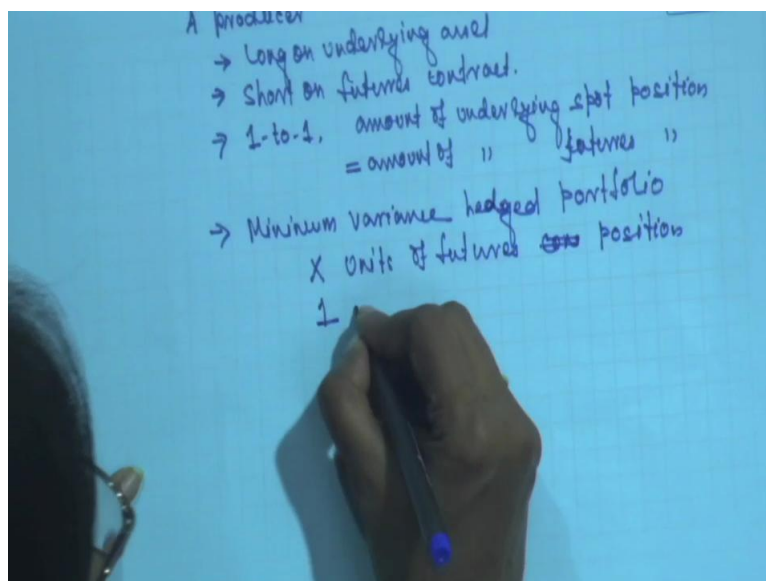 A producer
→ Long on underlying asset
→ Short on futures contract.
→ 1-to-1, amount of underlying spot position
= amount of " futures "
→ Minimum variance hedged portfolio
X units of futures position
1